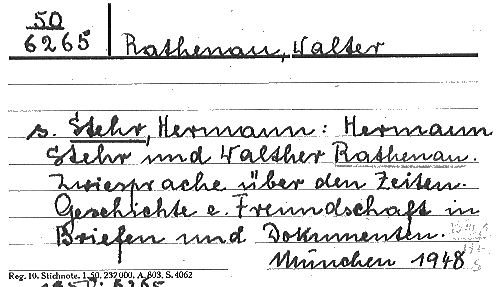 50
6265
Rathenau, Walter
s. Stehr, Hermann: Hermann
Stehr und Walther Rathenau.
Zwiesprache über den Zeiten.
Geschichte e. Freundschaft in
Briefen und Dokumenten.
München 1948
Reg. 10. Stichnote. 1. 50. 232000. A 803. S. 4062